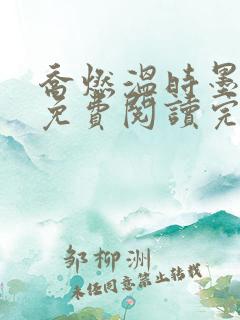 喬燃温時墨
免費閱讀完
邹柳洲
未经同意禁止转载